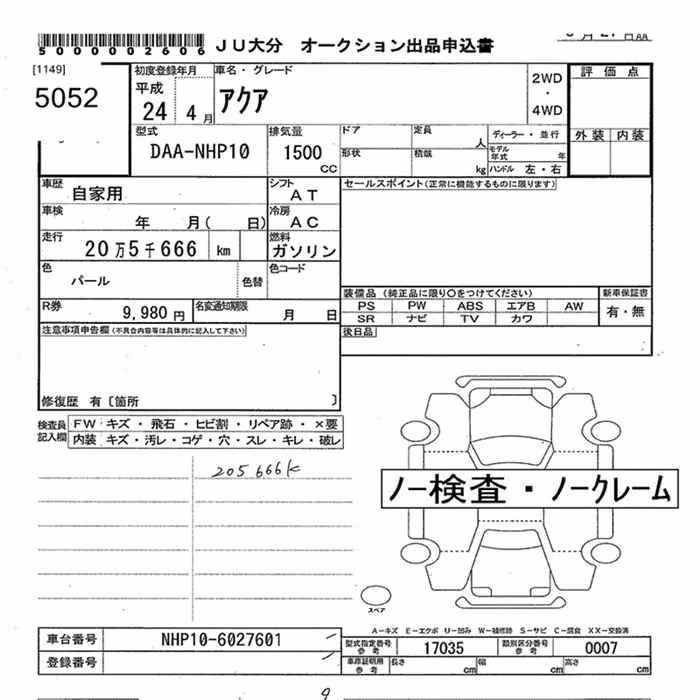 5000002606 JU大分 オークション出品申込書
[1149]
5052
初度登録年月 車名・グレード
平成
24 4月
アクア
2WD
・
4WD
評価点
外装 内装
型式
DAA-NHP10
排気量
1500
CC
ドア 定員 人
形状 積載 kg
ディーラー・並行
モデル年式 年
ハンドル 左・右
車歴 自家用
シフト AT
セールスポイント(正常に機能するものに限ります)
車検 年 月( 日)
冷房 AC
走行 20万5千666 km
燃料 ガソリン
色 パール 色替
色コード
R券 9,980円
名変通知期限 月 日
装備品(純正品に限り○をつけてください)
新車保証書
PS PW ABS エアB AW
有・無
SR ナビ TV カワ
後日品
注意事項申告欄(不具合内容等は具体的に記入して下さい)
修復歴 有〔箇所 〕
検査員記入欄
FW キズ・飛石・ヒビ割・リペア跡・×要
内装 キズ・汚レ・コゲ・穴・スレ・キレ・破レ
205666K
ノー検査・ノークレーム
スペア
A-キズ E-エクボ U-凹み W-補修跡 S-サビ C-腐食 XX-交換済
車台番号 NHP10-6027601
型式指定番号 参考 17035
類別区分番号 参考 0007
登録番号
車庫証明用 参考 長さ cm 幅 cm 高さ cm